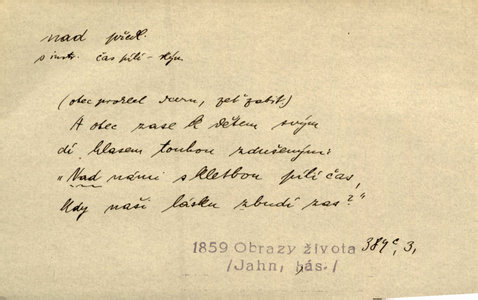 nad předl.
s instr. čas pílí - kým
(otec proklel dceru, zeť zabit.)
A otec zase k dětem svým
dí hlasem touhou zdušeným:
"Nad námi s kletbou pílí čas,
Kdy naši lásku zbudí zas?"
1859 Obrazy života 389c, 3,
/Jahn, bás./